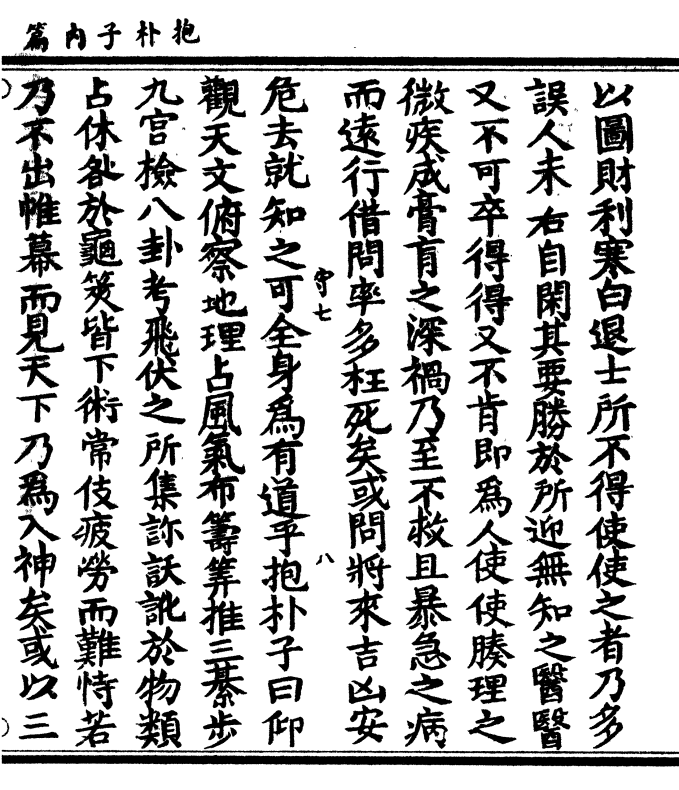 抱朴子內篇
以圖財利寒白退士所不得使使之者乃多
誤人未右自閑其要勝於所迎無知之醫醫
又不可卒得得又不肯即為人使使腠理之
微疾成膏肓之深禍乃至不救且暴急之病
而遠行借問率多枉死矣或問將來吉凶安
危去就知之可全身為有道乎抱朴子曰仰
守七
八
觀天文俯察地理占風氣布籌筭推三棊步
九宮檢八卦考飛伏之所集診訞訛於物類
占休咎於龜筴皆下術常伎疲勞而難恃若
乃不出帷幕而見天下乃為入神矣或以三